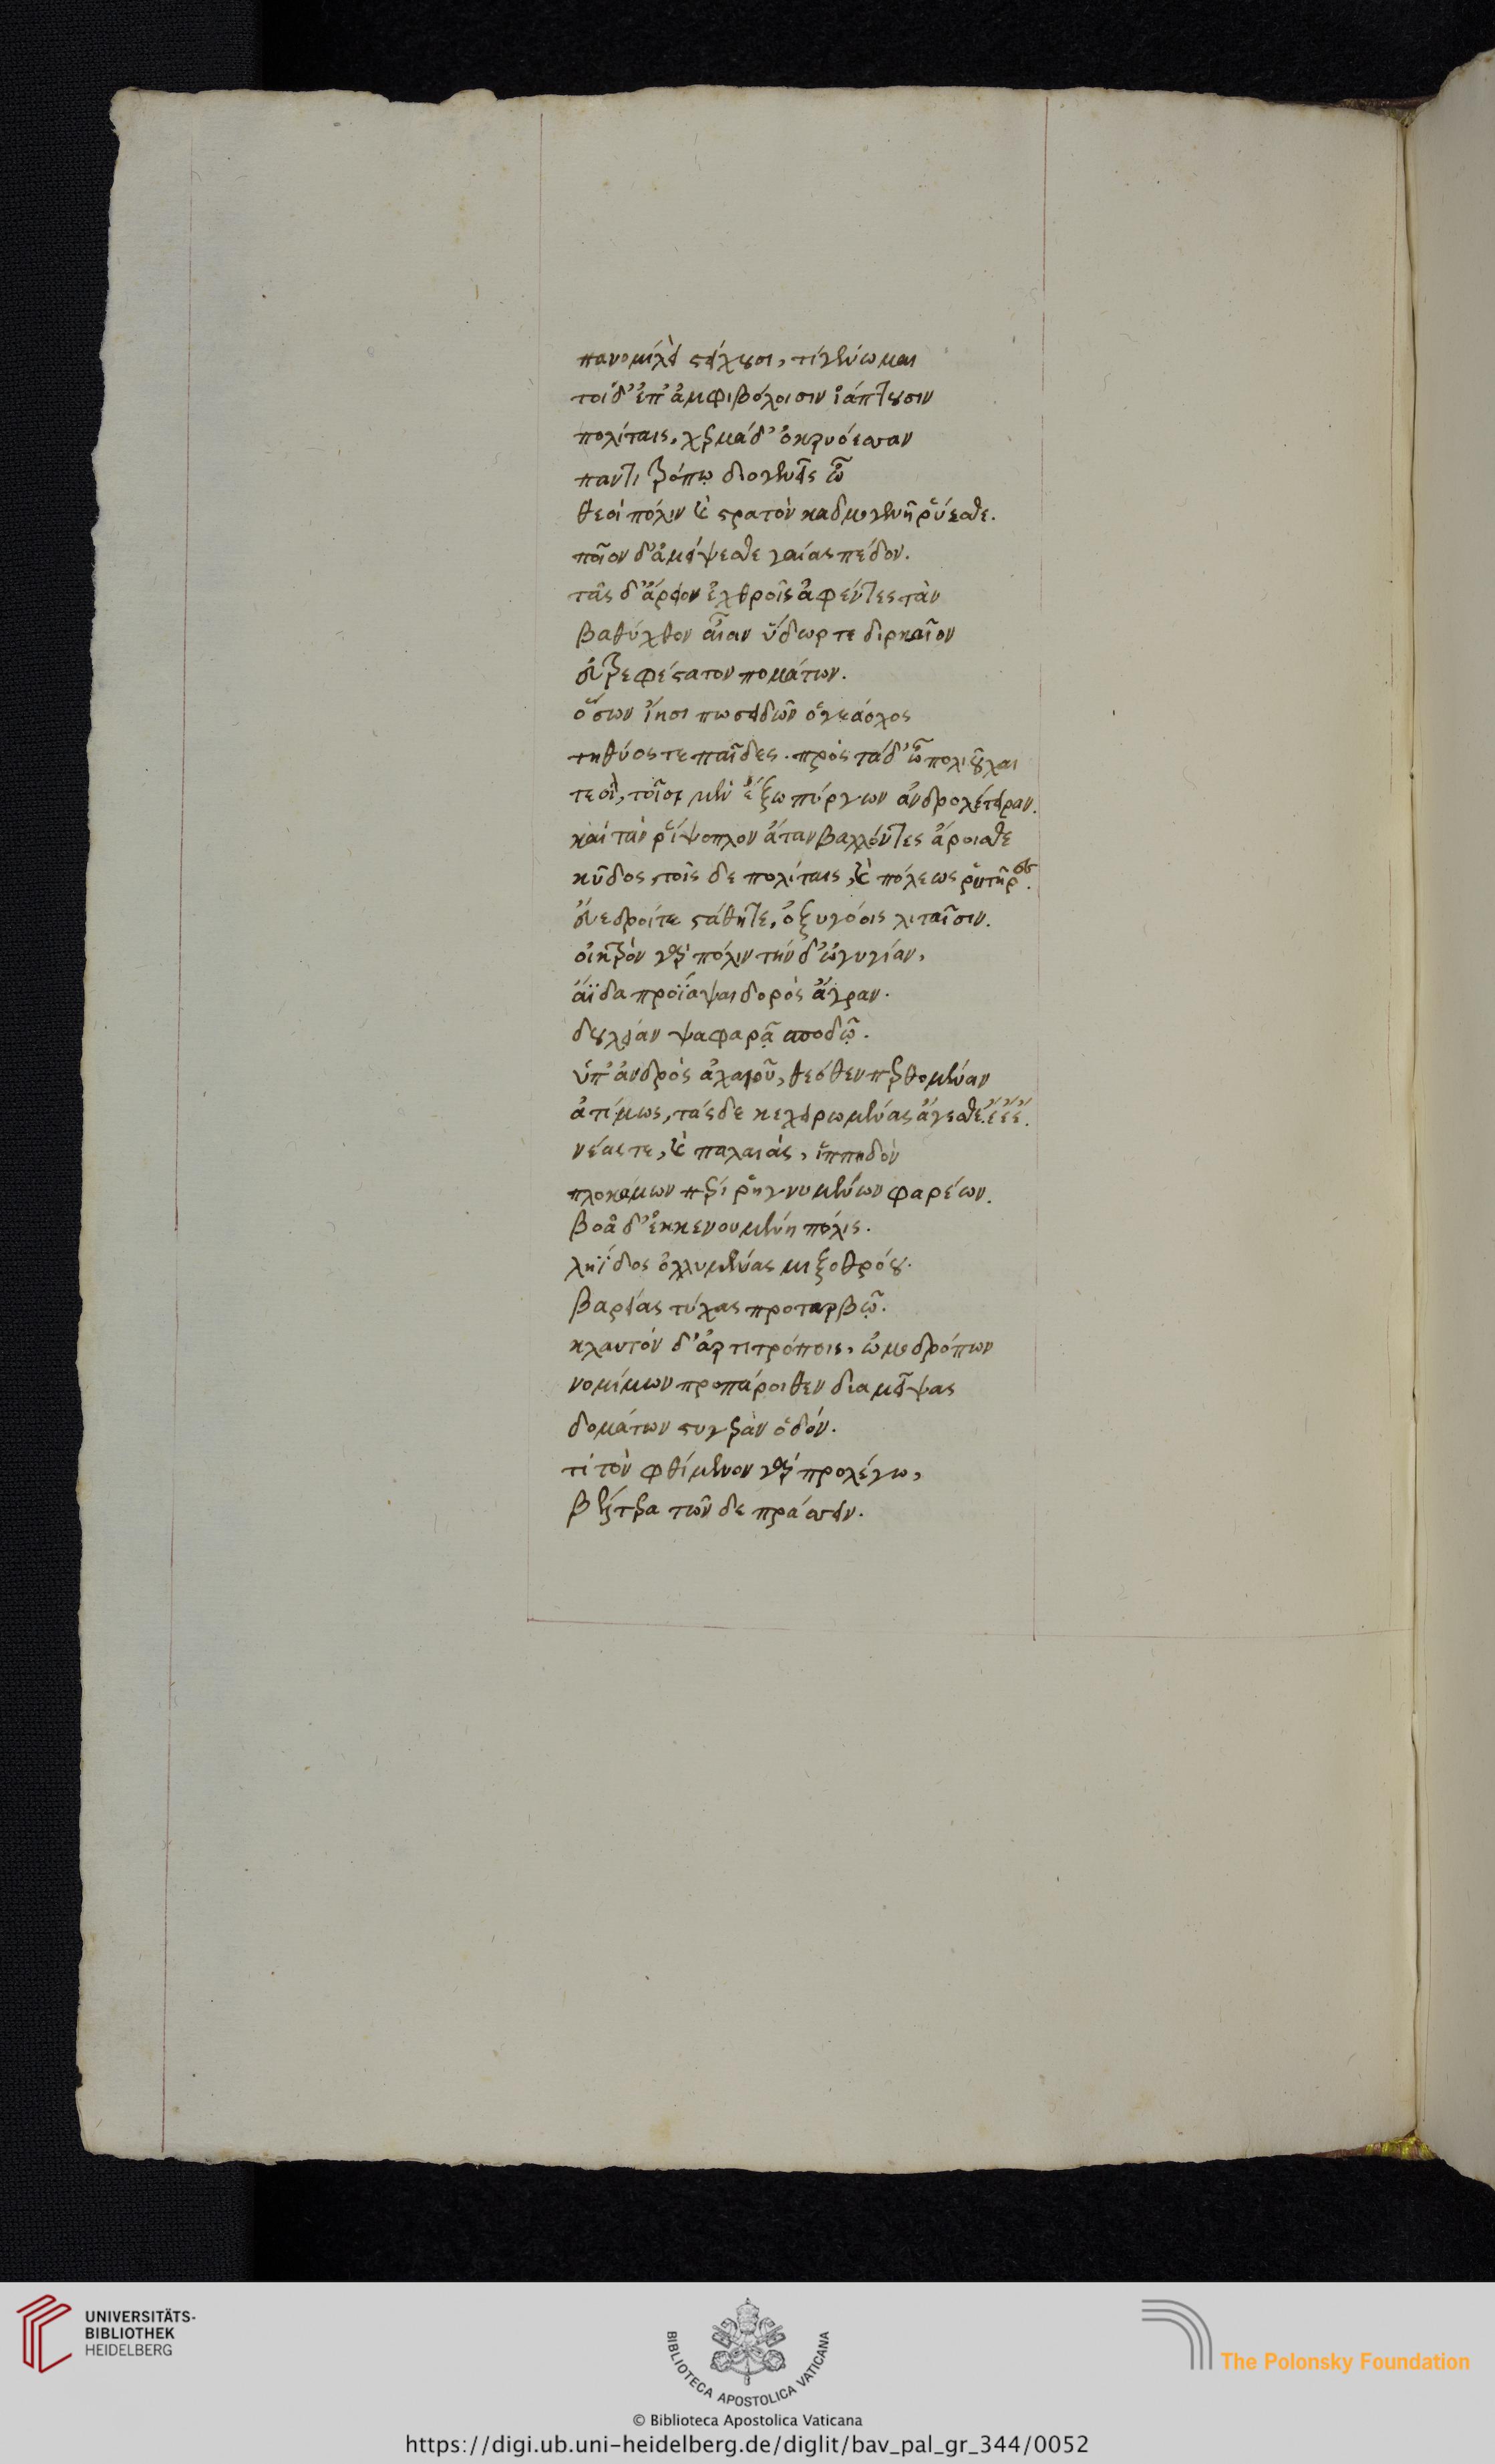 πανομιλεὶ στείχουσι, τί γένωμαι
τοὶ δ' ἐπ' ἀμφιβόλοισιν ἰάπτουσιν
πολίταις, χερμάδ' ὀκρυόεσσαν
παντὶ τρόπῳ διογενεῖς ὦ
θεοὶ πόλιν καὶ στρατὸν καδμογενῆ ῥύεσθε.
ποῖον δ' ἀμείψεσθε γαίας πέδον.
τᾶς δ' ἄρειον ἐχθροῖς ἀφέντες τὰν
βαθύχθον' αἶαν ὕδωρ τε διρκαῖον
εὐτρεφέστατον πομάτων.
ὅσων ἵησι ποσειδῶν ὁ γεάοχος
τηθύος τε παῖδες. πρὸς τάδ' ὦ πολιοῦχοι
θεοὶ, τοῖσι μὲν ἔξω πύργων ἀνδρολέτειραν.
καὶ τὰν ῥίψοπλον ἄταν βαλλόντες ἄροισθε
κῦδος, τοῖς δε πολίταις, καὶ πόλεως ῥυτῆρες.
εὔεδροί τε στάθητε, ὀξυγόοις λιταῖσιν.
οἰκτρὸν γὰρ πόλιν τήνδ' ὠγυγίαν,
ἀΐδα προϊάψαι δορὸς ἄγραν.
δουλείαν ψαφαρᾷ σποδῷ.
ὑπ' ἀνδρὸς ἀχαιοῦ, θεόθεν περθομέναν
ἀτίμως, τάς δε κεχειρωμένας ἄγεσθε. ἒ ἒ ἒ.
νέας τε, καὶ παλαιάς, ἱππηδὸν
πλοκάμων περὶ ῥηγνυμένων φαρέων.
βοᾷ δ' ἐκκενουμένη πόλις.
ληΐδος ὀλλυμένας μιξοθρόου.
βαρείας τύχας προταρβῶ.
κλαυτὸν δ' ἀρτιτρόποις, ὠμοδρόπων
νομίμων προπάροιθεν διαμεῖψας
δομάτων στυγερὰν ὁδόν.
τί τὸν φθίμενον γὰρ προλέγω,
βέλτερα τῶν δε πράσσειν.
UNIVERSITÄTS-
BIBLIOTHEK
HEIDELBERG
BIBLIOTECA APOSTOLICA VATICANA
The Polonsky Foundation
© Biblioteca Apostolica Vaticana
https://digi.ub.uni-heidelberg.de/diglit/bav_pal_gr_344/0052